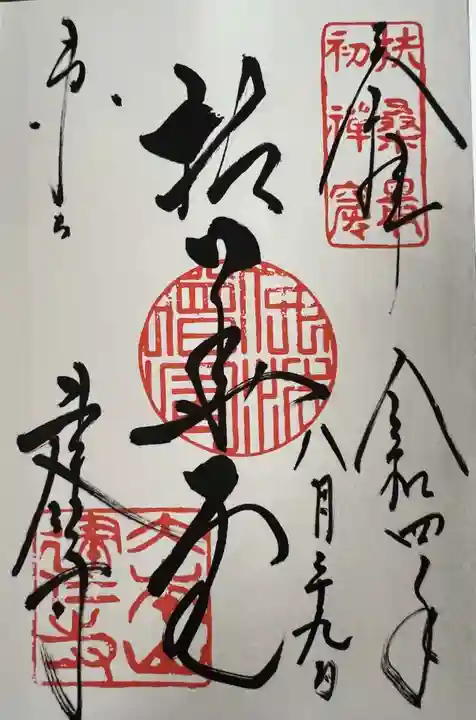 扶桑最
初禪窟
奉拝
令和四年
八月二十九日
拈華堂
建仁寺
大本山
建仁寺